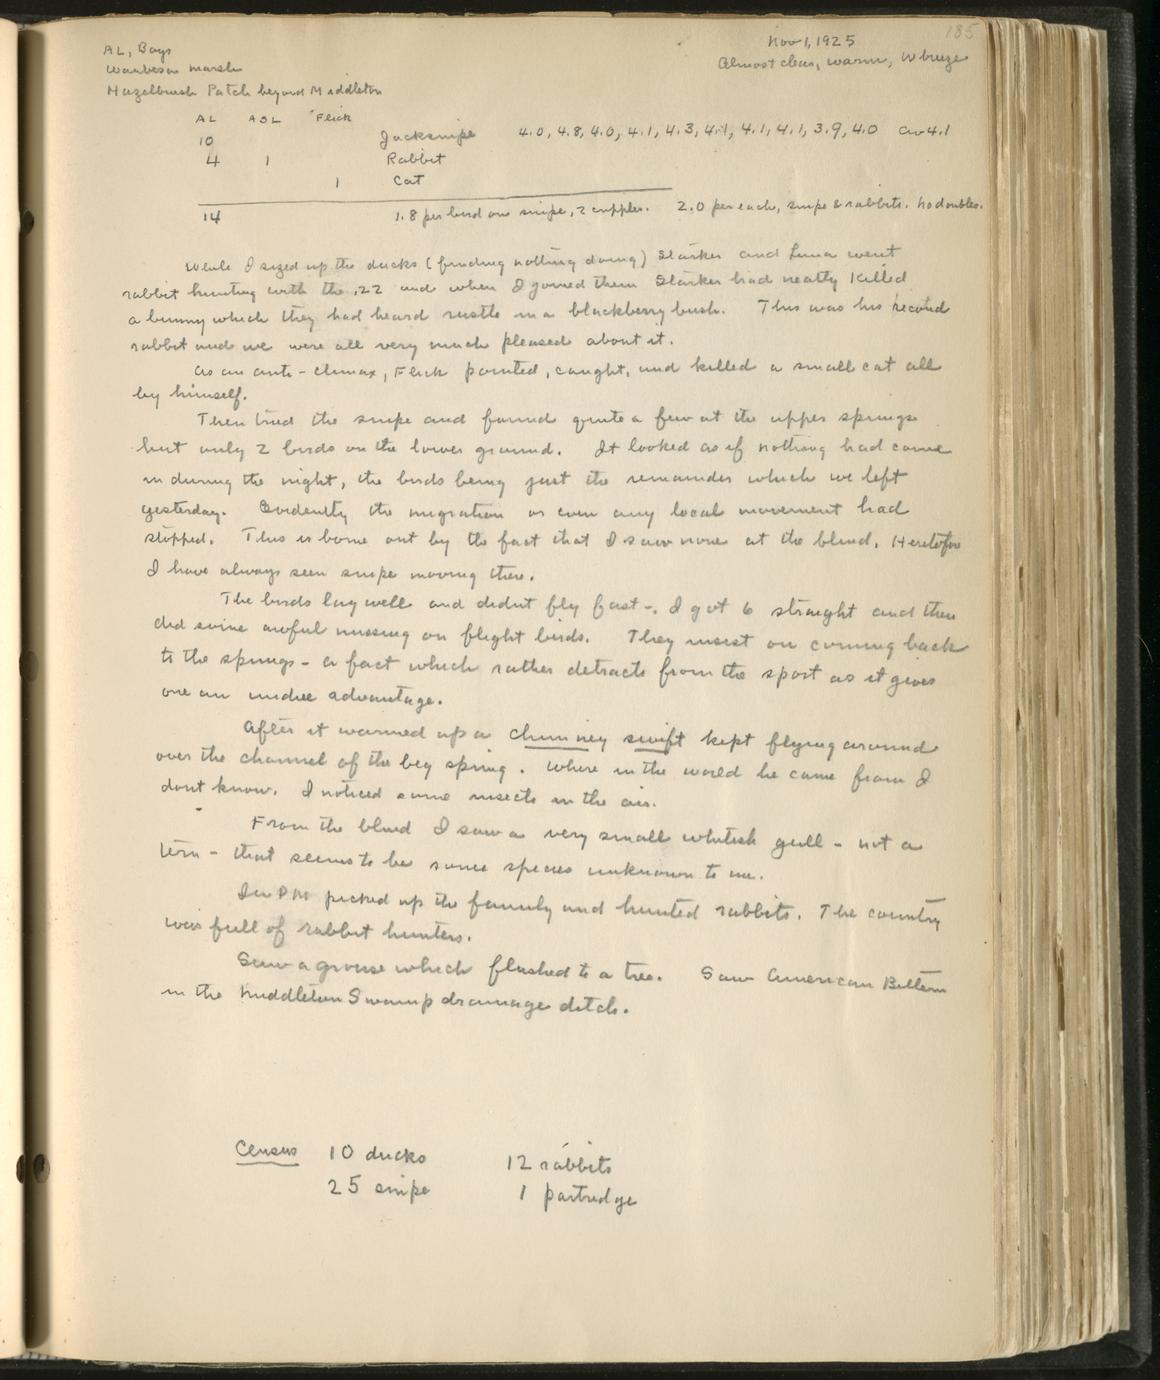 185
Nov 1, 1925
AL, Boys
Almost clear, warm, W breeze
Waubesa Marsh
Hazelbrush Patch beyond Middleton
AL ASL Flick
10 Jacksnipe 4.0, 4.8, 4.0, 4.1, 4.3, 4.1, 4.1, 4.1, 3.9, 4.0 av 4.1
4 1 Rabbit
1 Cat
14 1.8 per bird on snipe, 2 cripples. 2.0 per each, snipe & rabbits. No doubles.
While I sized up the ducks (finding nothing doing) Starker and Luna went
rabbit hunting with the .22 and when I joined them Starker had neatly killed
a bunny which they had heard rustle in a blackberry bush. This was his second
rabbit and we were all very much pleased about it.
As an anti-climax, Flick pointed, caught, and killed a small cat all
by himself.
Then tried the snipe and found quite a few at the upper springs
but only 2 birds on the lower ground. It looked as if nothing had come
in during the night, the birds being just the remainder which we left
yesterday. Evidently the migration or even any local movement had
stopped. This is borne out by the fact that I saw none at the blind. Heretofore
I have always seen snipe moving there.
The birds lay well and didnt fly fast-. I got 6 straight and then
did some awful missing on flight birds. They insist on coming back
to the springs - a fact which rather detracts from the sport as it gives
one an undue advantage.
After it warmed up a chimney swift kept flying around
over the channel of the big spring. Where in the world he came from I
dont know. I noticed some insects in the air.
From the blind I saw a very small whitish gull - not a
tern - that seems to be some species unknown to me.
In PM picked up the family and hunted rabbits. The country
was full of rabbit hunters.
Saw a grouse which flushed to a tree. Saw American Bittern
in the Middleton Swamp drainage ditch.
Census 10 ducks 12 rabbits
25 snipe 1 partridge